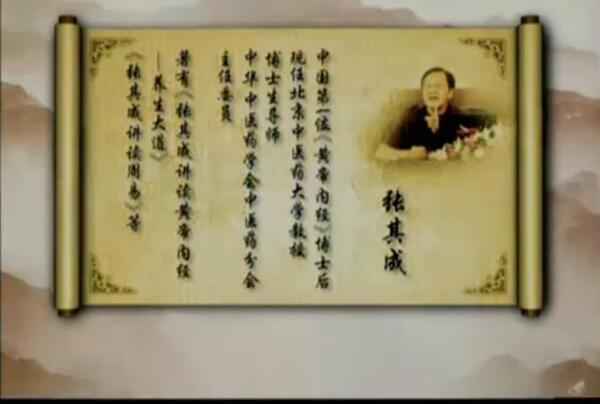 张其成
中国第一位《黄帝内经》博士后
现任北京中医药大学教授
博士生导师
中华中医药学会中医药分会
主任委员
著有《张其成讲读黄帝内经
——养生大道》
《张其成讲读周易》等